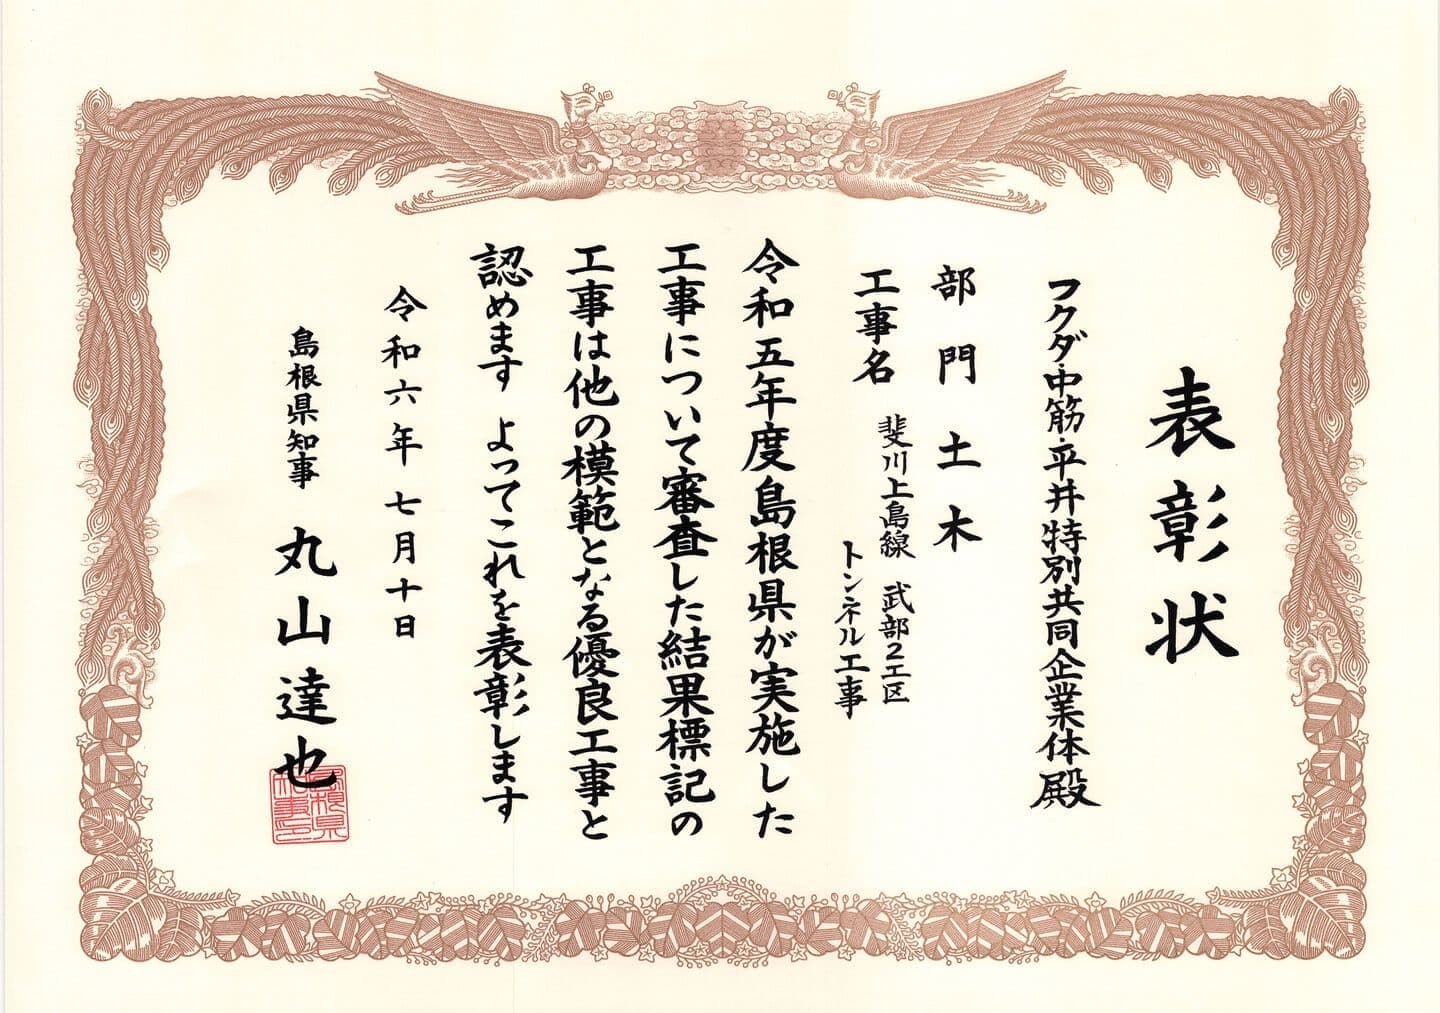 表彰状
フクダ・中筋・平井特別共同企業体殿
部門 土木
工事名 斐川上島線 武部2工区
トンネル工事
令和五年度島根県が実施した
工事について審査した結果標記の
工事は他の模範となる優良工事と
認めます よってこれを表彰します
令和六年七月十日
島根県知事 丸山達也
島根県知事印